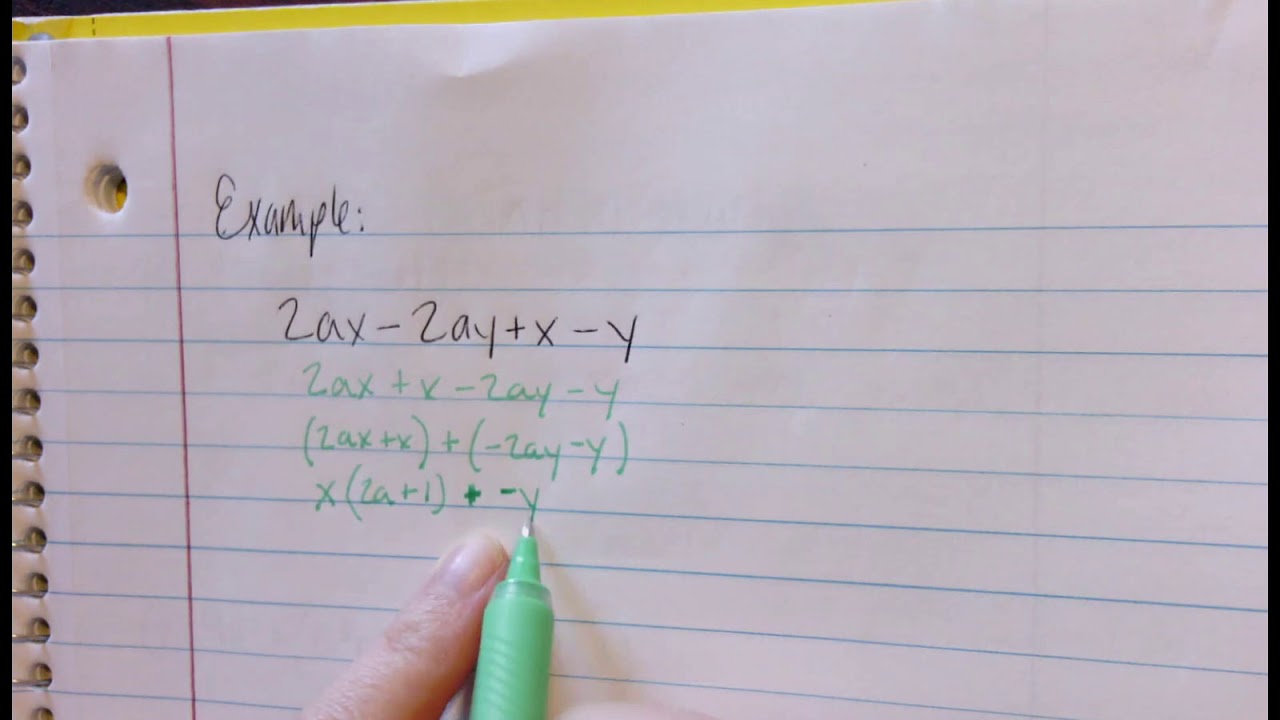 Example:
2ax - 2ay + x - y
2ax + x - 2ay - y
(2ax + x) + (-2ay - y)
x(2a + 1) + -y